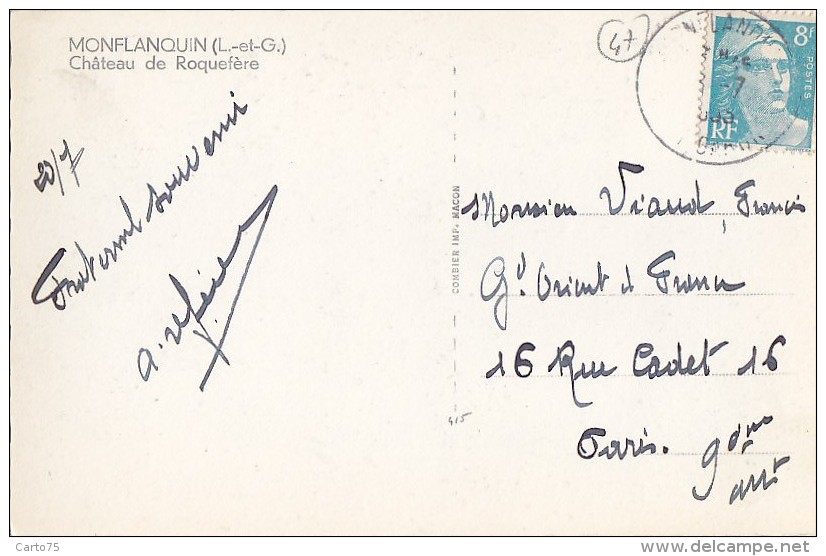 MONFLANQUIN (L.-et-G.)
Château de Roquefère
20/7
Fraternel souvenir
COMBIER IMP. MACON
47
8F
POSTES
RF
Monsieur Viaud, Francis
Gd. Orient de France
16 Rue Cadet 16
Paris. 9ème
arrt
415
Carto75
www.delcampe.net